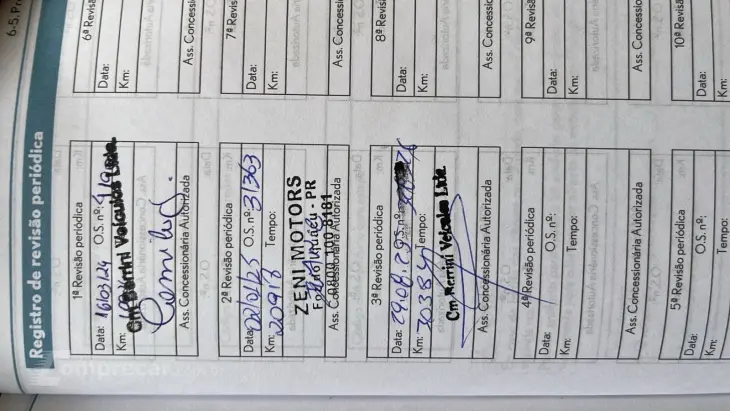 Registro de revisão periódica
1ª Revisão periódica
Data: 16/03/24 O.S. nº:
Km:
Cm Berrini Veículos Ltda.
Ass. Concessionária Autorizada
2ª Revisão periódica
Data: 22/01/25 O.S. nº: 31363
Km: 20918 Tempo:
ZENI MOTORS
Foz do Iguaçu - PR
0800 100 8181
Ass. Concessionária Autorizada
3ª Revisão periódica
Data: 29.08.25 O.S. nº:
Km: 30384 Tempo:
Cm Berrini Veículos Ltda.
Ass. Concessionária Autorizada
4ª Revisão periódica
Data: O.S. nº:
Km: Tempo:
Ass. Concessionária Autorizada
5ª Revisão periódica
Data: O.S. nº:
Km: Tempo:
6ª Revisão
Data:
Km:
Ass. Concessioná
7ª Revisão
Data:
Km:
Ass. Concession
8ª Revisã
Data:
Km:
Ass. Concession
9ª Revisã
Data:
Km:
Ass. Concession
10ª Revis
Data:
Km: